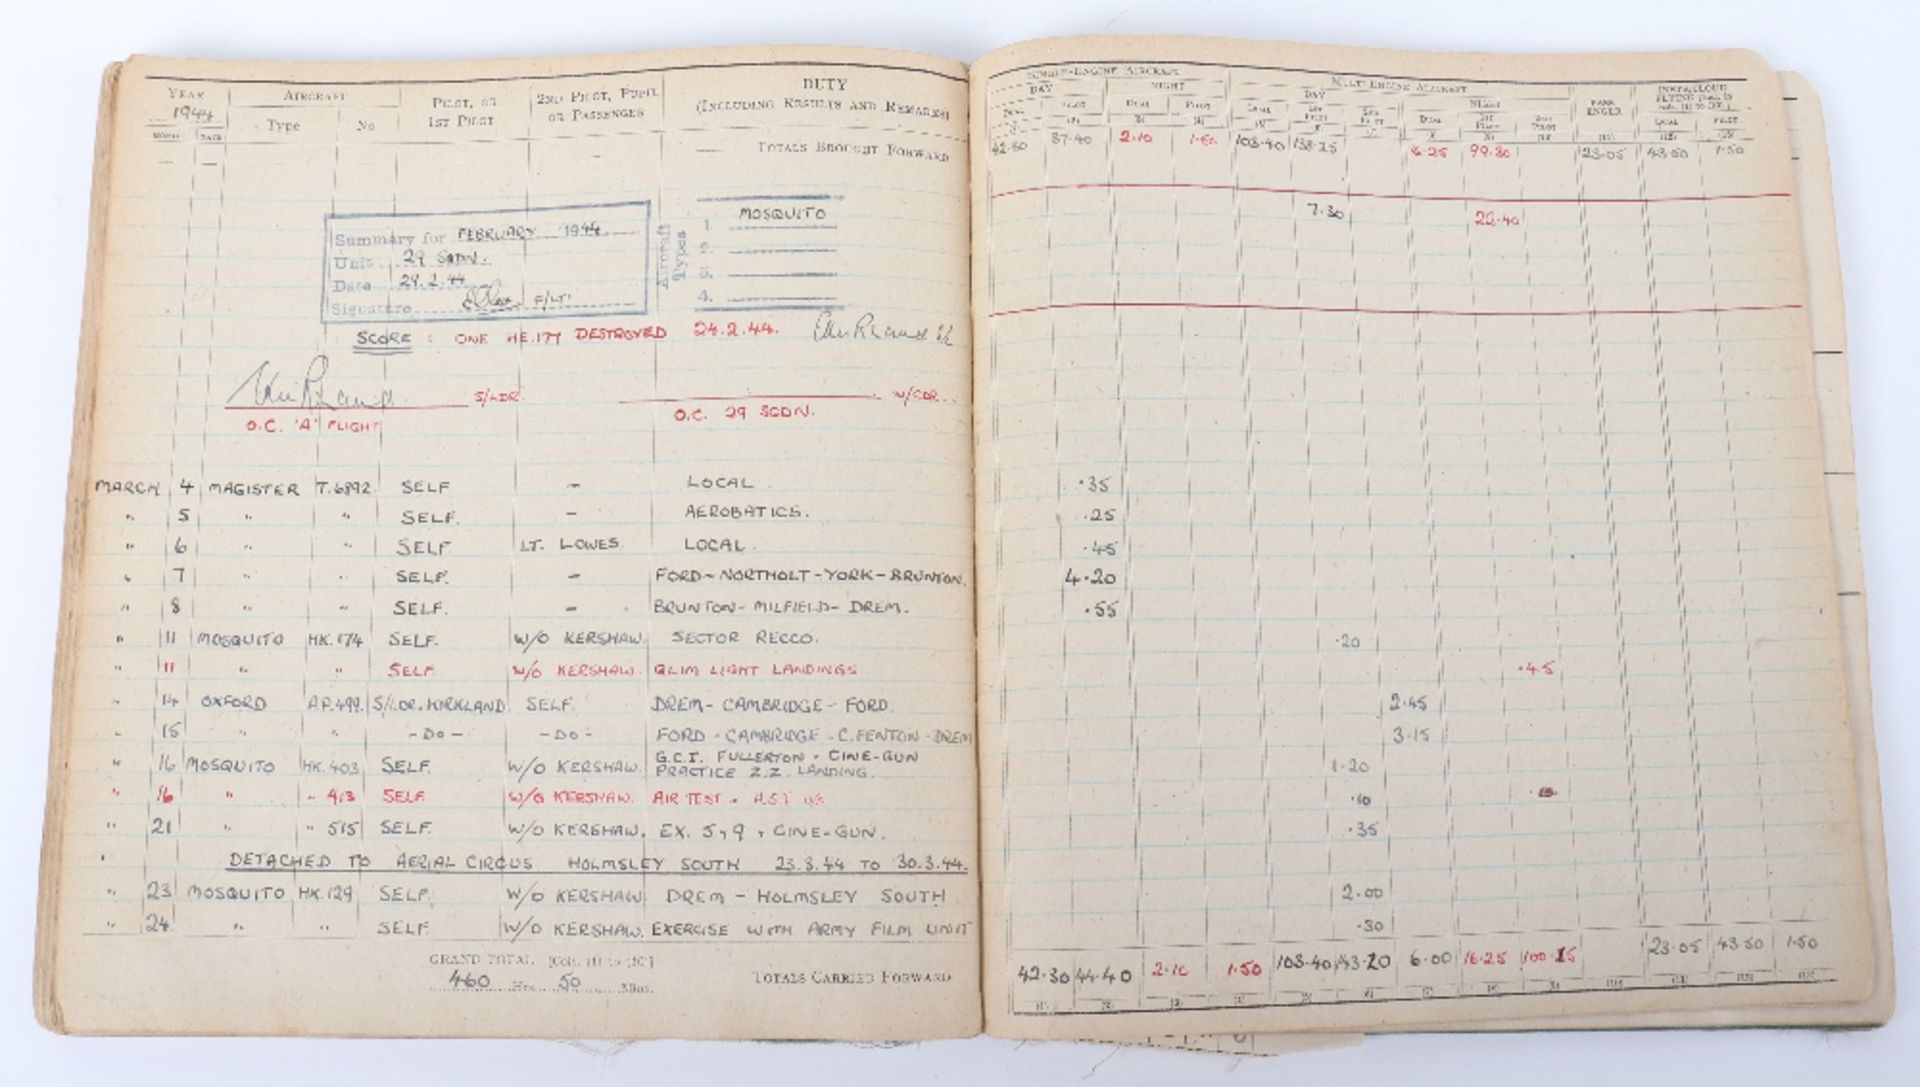 YEAR AIRCRAFT PILOT, OR 1ST PILOT 2ND PILOT, PUPIL OR PASSENGER DUTY (INCLUDING RESULTS AND REMARKS)
1944 Type No
MONTH DATE
— — — — TOTALS BROUGHT FORWARD
Summary for FEBRUARY 1944
Unit 29 SQDN.
Date 29.2.44
Signature F/LT.
Aircraft Types
1. MOSQUITO
2.
3.
4.
SCORE : ONE HE.177 DESTROYED 24.2.44.
S/LDR. W/CDR.
O.C. 'A' FLIGHT O.C. 29 SQDN.
MARCH 4 MAGISTER T.6892 SELF - LOCAL.
" 5 " " SELF. - AEROBATICS.
" 6 " " SELF. LT. LOWES. LOCAL.
" 7 " " SELF. - FORD-NORTHOLT-YORK-BRUNTON.
" 8 " " SELF. - BRUNTON-MILFIELD-DREM.
" 11 MOSQUITO HK.174 SELF. W/O KERSHAW. SECTOR RECCO.
" 11 " " SELF. W/O KERSHAW. GLIM LIGHT LANDINGS.
" 14 OXFORD AP.499. S/LDR. KIRKLAND. SELF. DREM-CAMBRIDGE-FORD.
" 15 " " -DO- -DO- FORD-CAMBRIDGE-C.FENTON-DREM
" 16 MOSQUITO HK.403 SELF. W/O KERSHAW. G.C.I. FULLERTON - CINE-GUN
PRACTICE Z.Z. LANDING.
" 16 " " 413 SELF. W/O KERSHAW. AIR TEST.
" 21 " " 515 SELF. W/O KERSHAW. EX. 5 & 9 + CINE-GUN.
" DETACHED TO AERIAL CIRCUS HOLMSLEY SOUTH 23.3.44 TO 30.3.44.
" 23 MOSQUITO HK.129 SELF. W/O KERSHAW DREM - HOLMSLEY SOUTH
" 24 " " SELF. W/O KERSHAW. EXERCISE WITH ARMY FILM UNIT
GRAND TOTAL [Cols. (1) to (10)]
460 Hrs. 50 Mins. TOTALS CARRIED FORWARD
SINGLE-ENGINE AIRCRAFT MULTI-ENGINE AIRCRAFT PASS-ENGER INSTR/CLOUD FLYING
DAY NIGHT DAY NIGHT
DUAL PILOT DUAL PILOT DUAL 1ST PILOT 2ND PILOT DUAL 1ST PILOT 2ND PILOT DUAL PILOT
37.40 2.10 1.50 103.40 138.25 6.25 99.30 23.05 43.50 1.50
7.30 22.40
.35
.25
.45
4.20
.55
.20
.45
2.45
3.15
1.20
.10
.35
2.00
.30
42.30 44.40 2.10 1.50 103.40 6.00 16.25 23.05 43.50 1.50